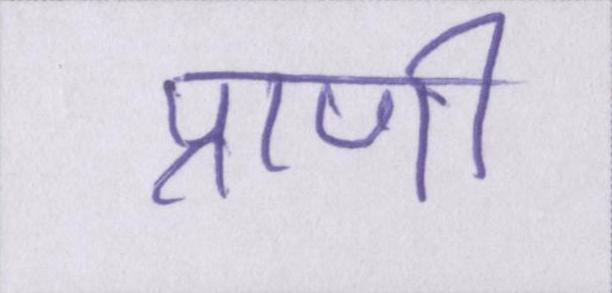 प्राणी